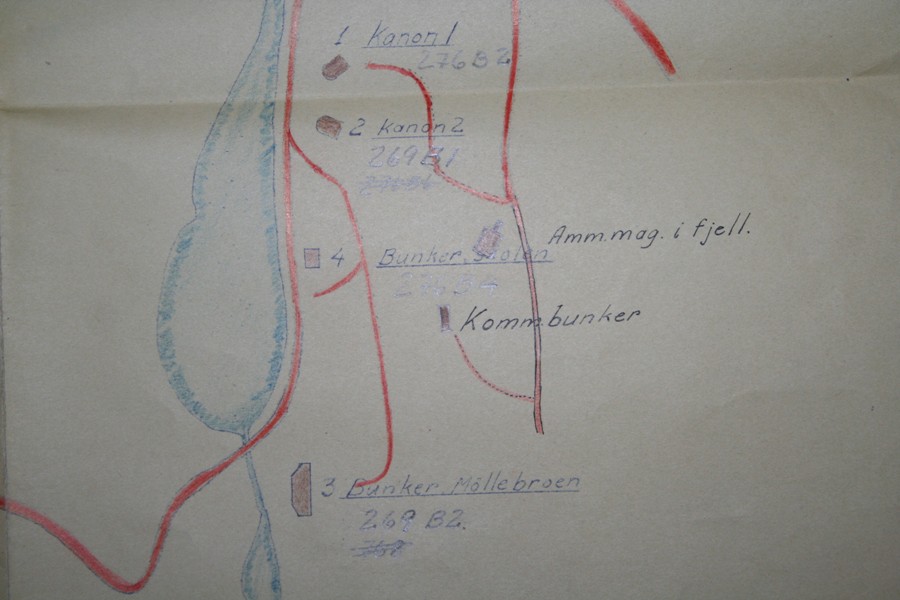 1 Kanon 1
276 B 2
2 Kanon 2
269 B 1
Amm.mag. i fjell.
4 Bunker.
Komm.bunker
3 Bunker. Möllebroen
269 B2.